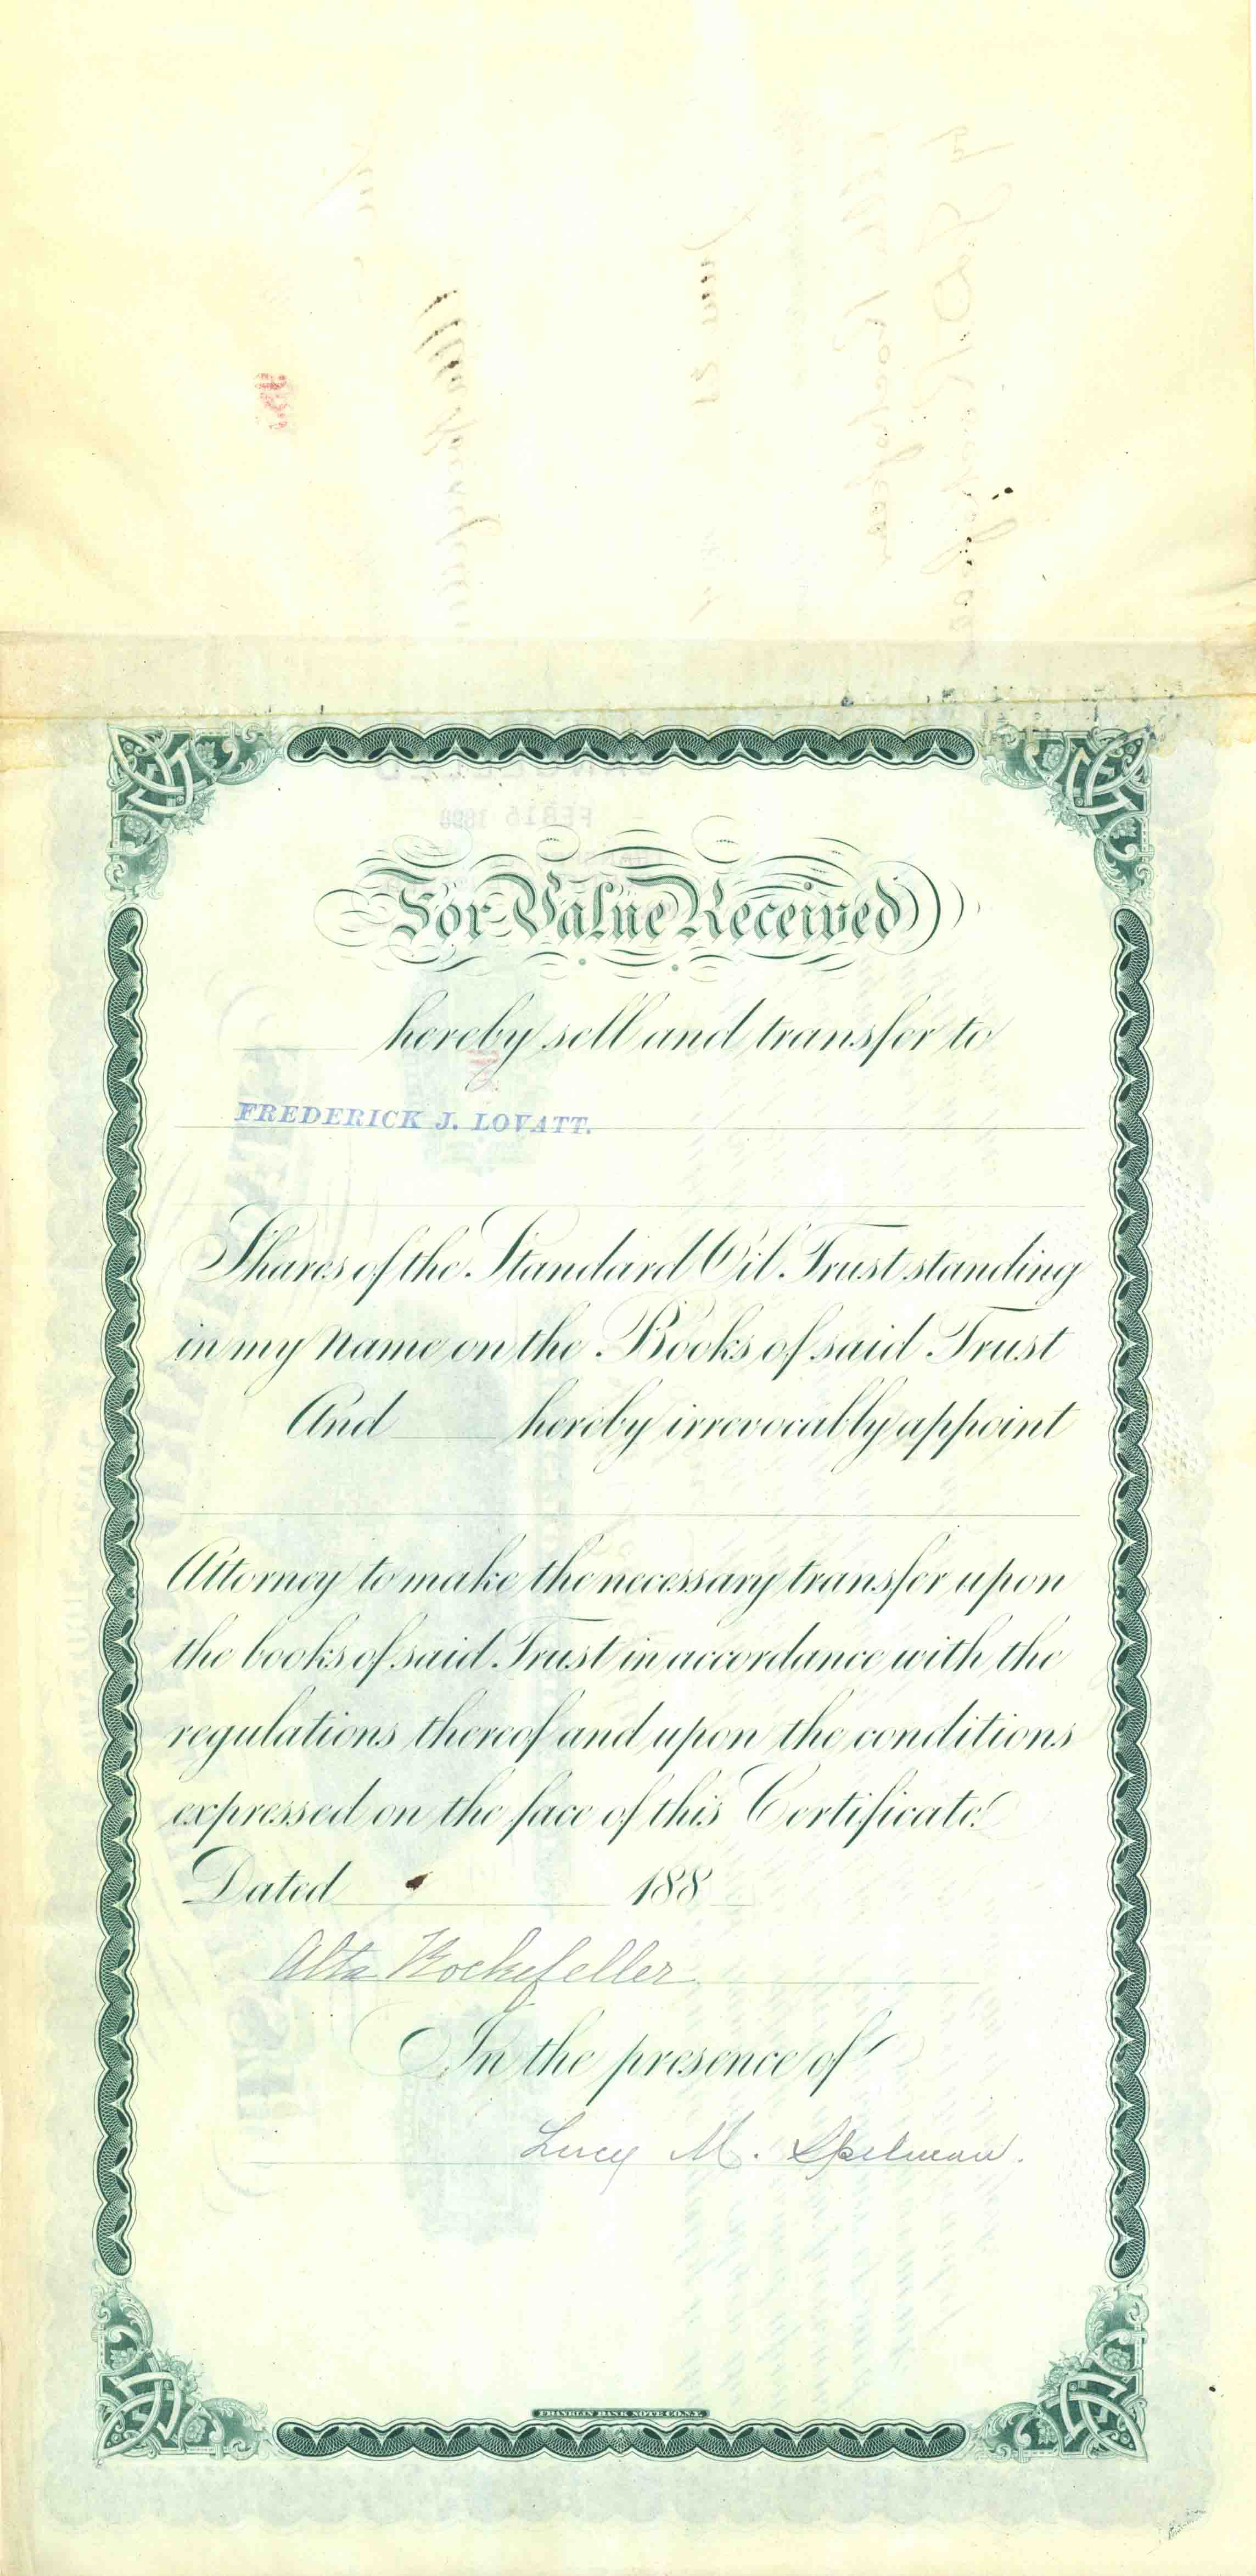 FEB 15 1898
For Value Received
hereby sell and transfer to
FREDERICK J. LOVATT.
Shares of the Standard Oil Trust standing
in my name on the Books of said Trust
And hereby irrevocably appoint
Attorney to make the necessary transfer upon
the books of said Trust in accordance with the
regulations thereof and upon the conditions
expressed on the face of this Certificate.
Dated 188
Alta Rockefeller
In the presence of
Lucy M. Spelman.
FRANKLIN BANK NOTE CO. N.Y.